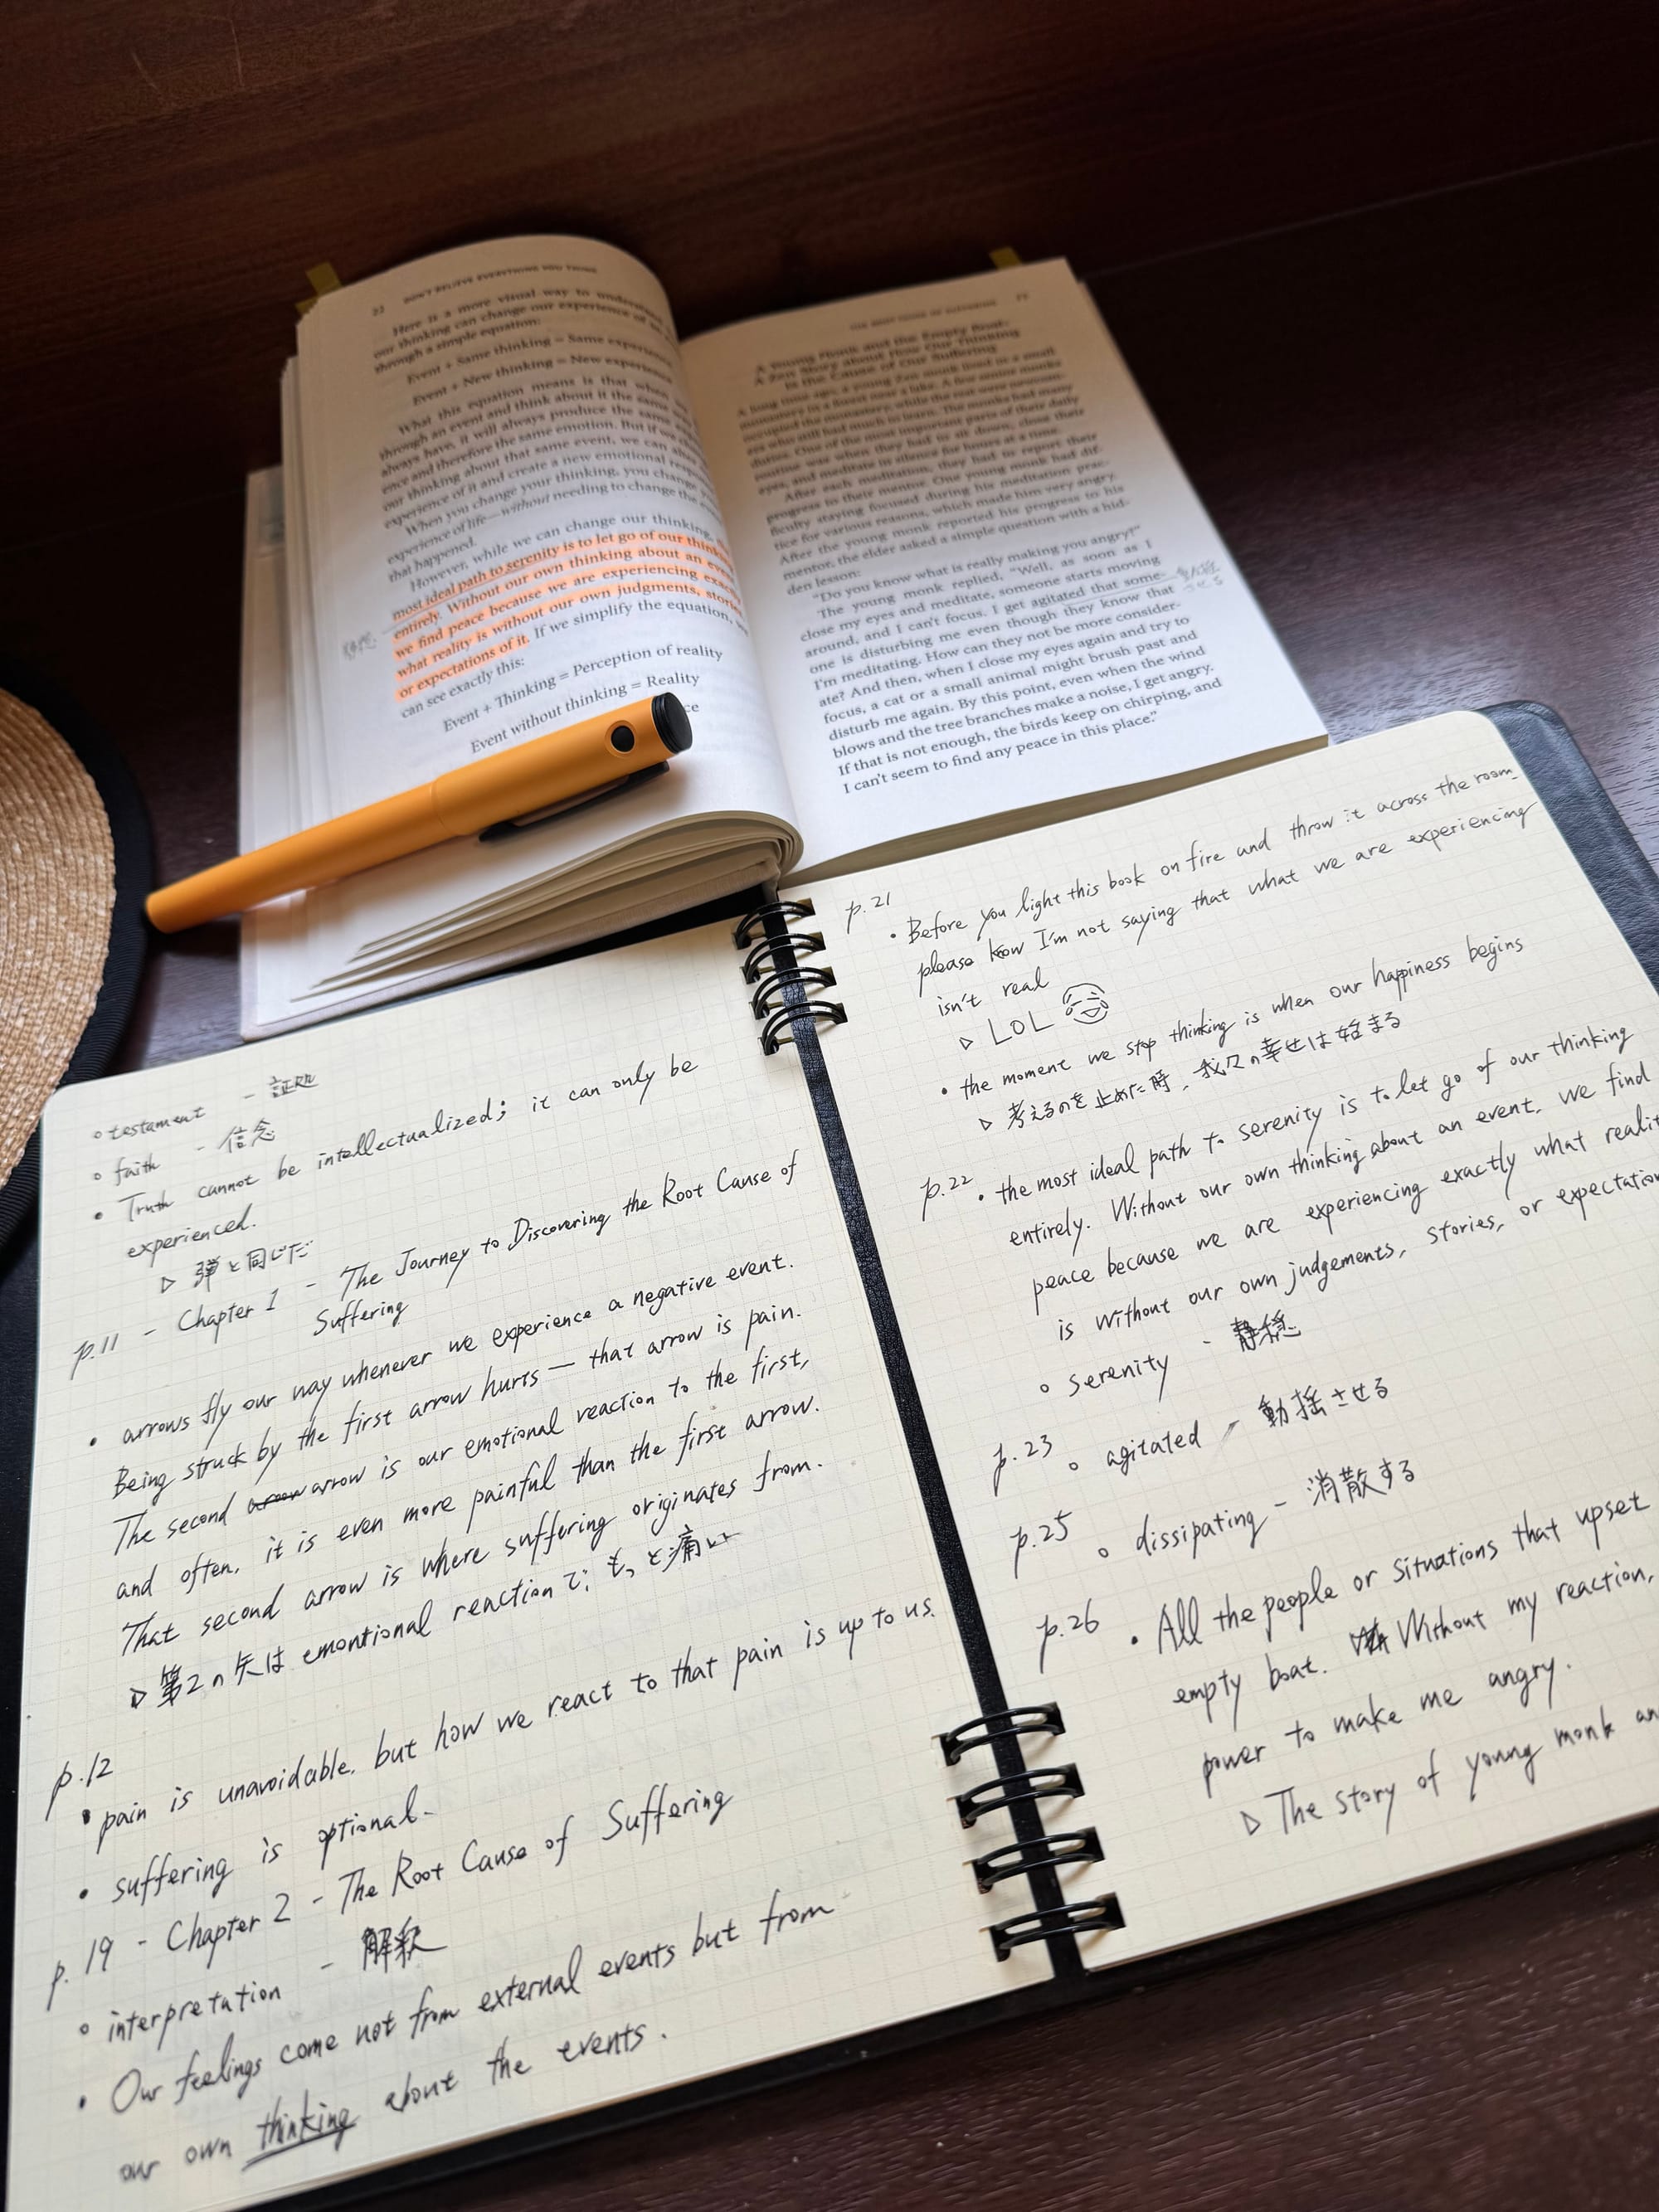 22 DON'T BELIEVE EVERYTHING YOU THINK
Here is a more visual way to understand
our thinking can change our experience of
through a simple equation:
Event + Same thinking = Same experience
Event + New thinking = New experience
What this equation means is that when
through an event and think about it the same
always have, it will always produce the same
ence and therefore the same emotion. But if we
our thinking about that same event, we can
experience of it and create a new emotional
When you change your thinking, you change
experience of life—without needing to change the
that happened.
However, while we can change our thinking,
most ideal path to serenity is to let go of our
entirely. Without our own thinking about an
we find peace because we are experiencing
what reality is without our own judgments,
or expectations of it. If we simplify the equation,
can see exactly this:
Event + Thinking = Perception of reality
Event without thinking = Reality
A Young Monk and the Empty Boat—
A Zen Story about How Our Thinking
Is the Cause of Our Suffering
A long time ago, a young Zen monk lived in a small
monastery in a forest near a lake. A few senior monks
occupied the monastery, while the rest were newcom-
ers who still had much to learn. The monks had many
duties. One of the most important parts of their daily
routine was when they had to sit down, close their
eyes, and meditate in silence for hours at a time.
After each meditation, they had to report their
progress to their mentor. One young monk had dif-
ficulty staying focused during his meditation prac-
tice for various reasons, which made him very angry.
After the young monk reported his progress to his
mentor, the elder asked a simple question with a hid-
den lesson:
"Do you know what is really making you angry?"
The young monk replied, "Well, as soon as I
close my eyes and meditate, someone starts moving
around, and I can't focus. I get agitated that some-
one is disturbing me even though they know that
I'm meditating. How can they not be more consider-
ate? And then, when I close my eyes again and try to
focus, a cat or a small animal might brush past and
disturb me again. By this point, even when the wind
blows and the tree branches make a noise, I get angry.
If that is not enough, the birds keep on chirping, and
I can't seem to find any peace in this place."
testament - 証拠
faith - 信念
Truth cannot be intellectualized; it can only be
experienced.
▷ 弾と同じだ
p.11 - Chapter 1 - The Journey to Discovering the Root Cause of
Suffering
• arrows fly our way whenever we experience a negative event.
Being struck by the first arrow hurts — that arrow is pain.
The second arrow is our emotional reaction to the first,
and often, it is even more painful than the first arrow.
That second arrow is where suffering originates from.
▷ 第2の矢は emontional reactionで、もっと痛い
p.12
• pain is unavoidable, but how we react to that pain is up to us.
• suffering is optional.
p.19 - Chapter 2 - The Root Cause of Suffering
interpretation - 解釈
• Our feelings come not from external events but from
our own thinking about the events.
p.21
• Before you light this book on fire and throw it across the room,
please know I'm not saying that what we are experiencing
isn't real
▷ LOL
• the moment we stop thinking is when our happiness begins
▷ 考えるのを止めた時、我々の幸せは始まる
p.22 • the most ideal path to serenity is to let go of our thinking
entirely. Without our own thinking about an event, we find
peace because we are experiencing exactly what
is without our own judgements, stories, or
serenity - 静穏
p.23 agitated - 動揺させる
p.25 dissipating - 消散する
p.26 • All the people or situations that upset
empty boat. Without my reaction,
power to make me angry.
▷ The story of young monk